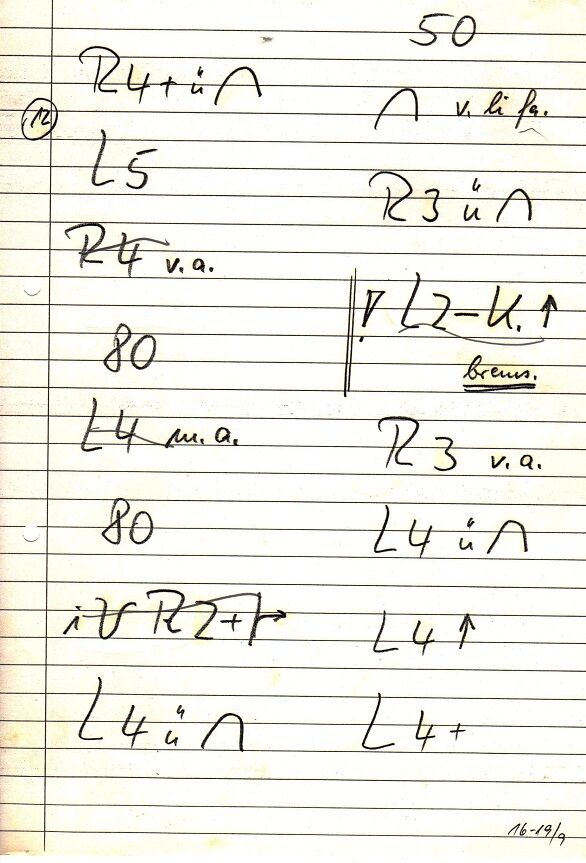 12
R4+ü∩
L5
R4 v.a.
80
L4 m.a.
80
R2+
L4ü∩
50
∩ v. li fa.
R3ü∩
! L2-K.↑
brems.
R3 v.a.
L4ü∩
L4↑
L4+
16-19/9